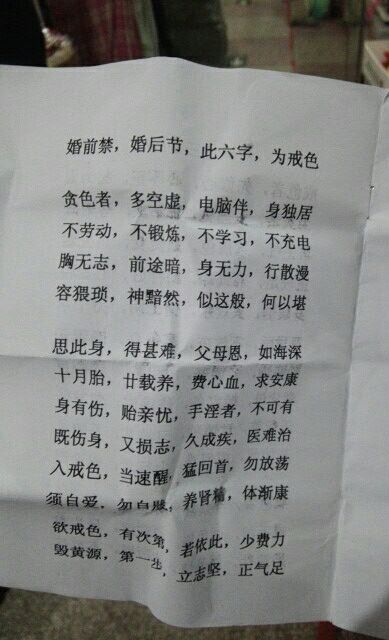 婚前禁，婚后节，此六字，为戒色
贪色者，多空虚，电脑伴，身独居
不劳动，不锻炼，不学习，不充电
胸无志，前途暗，身无力，行散漫
容猥琐，神黯然，似这般，何以堪
思此身，得甚难，父母恩，如海深
十月胎，廿载养，费心血，求安康
身有伤，贻亲忧，手淫者，不可有
既伤身，又损志，久成疾，医难治
入戒色，当速醒，猛回首，勿放荡
须自爱，勿自，养肾精，体渐康
欲戒色，有次第，若依此，少费力
毁黄源，第一步，立志坚，正气足